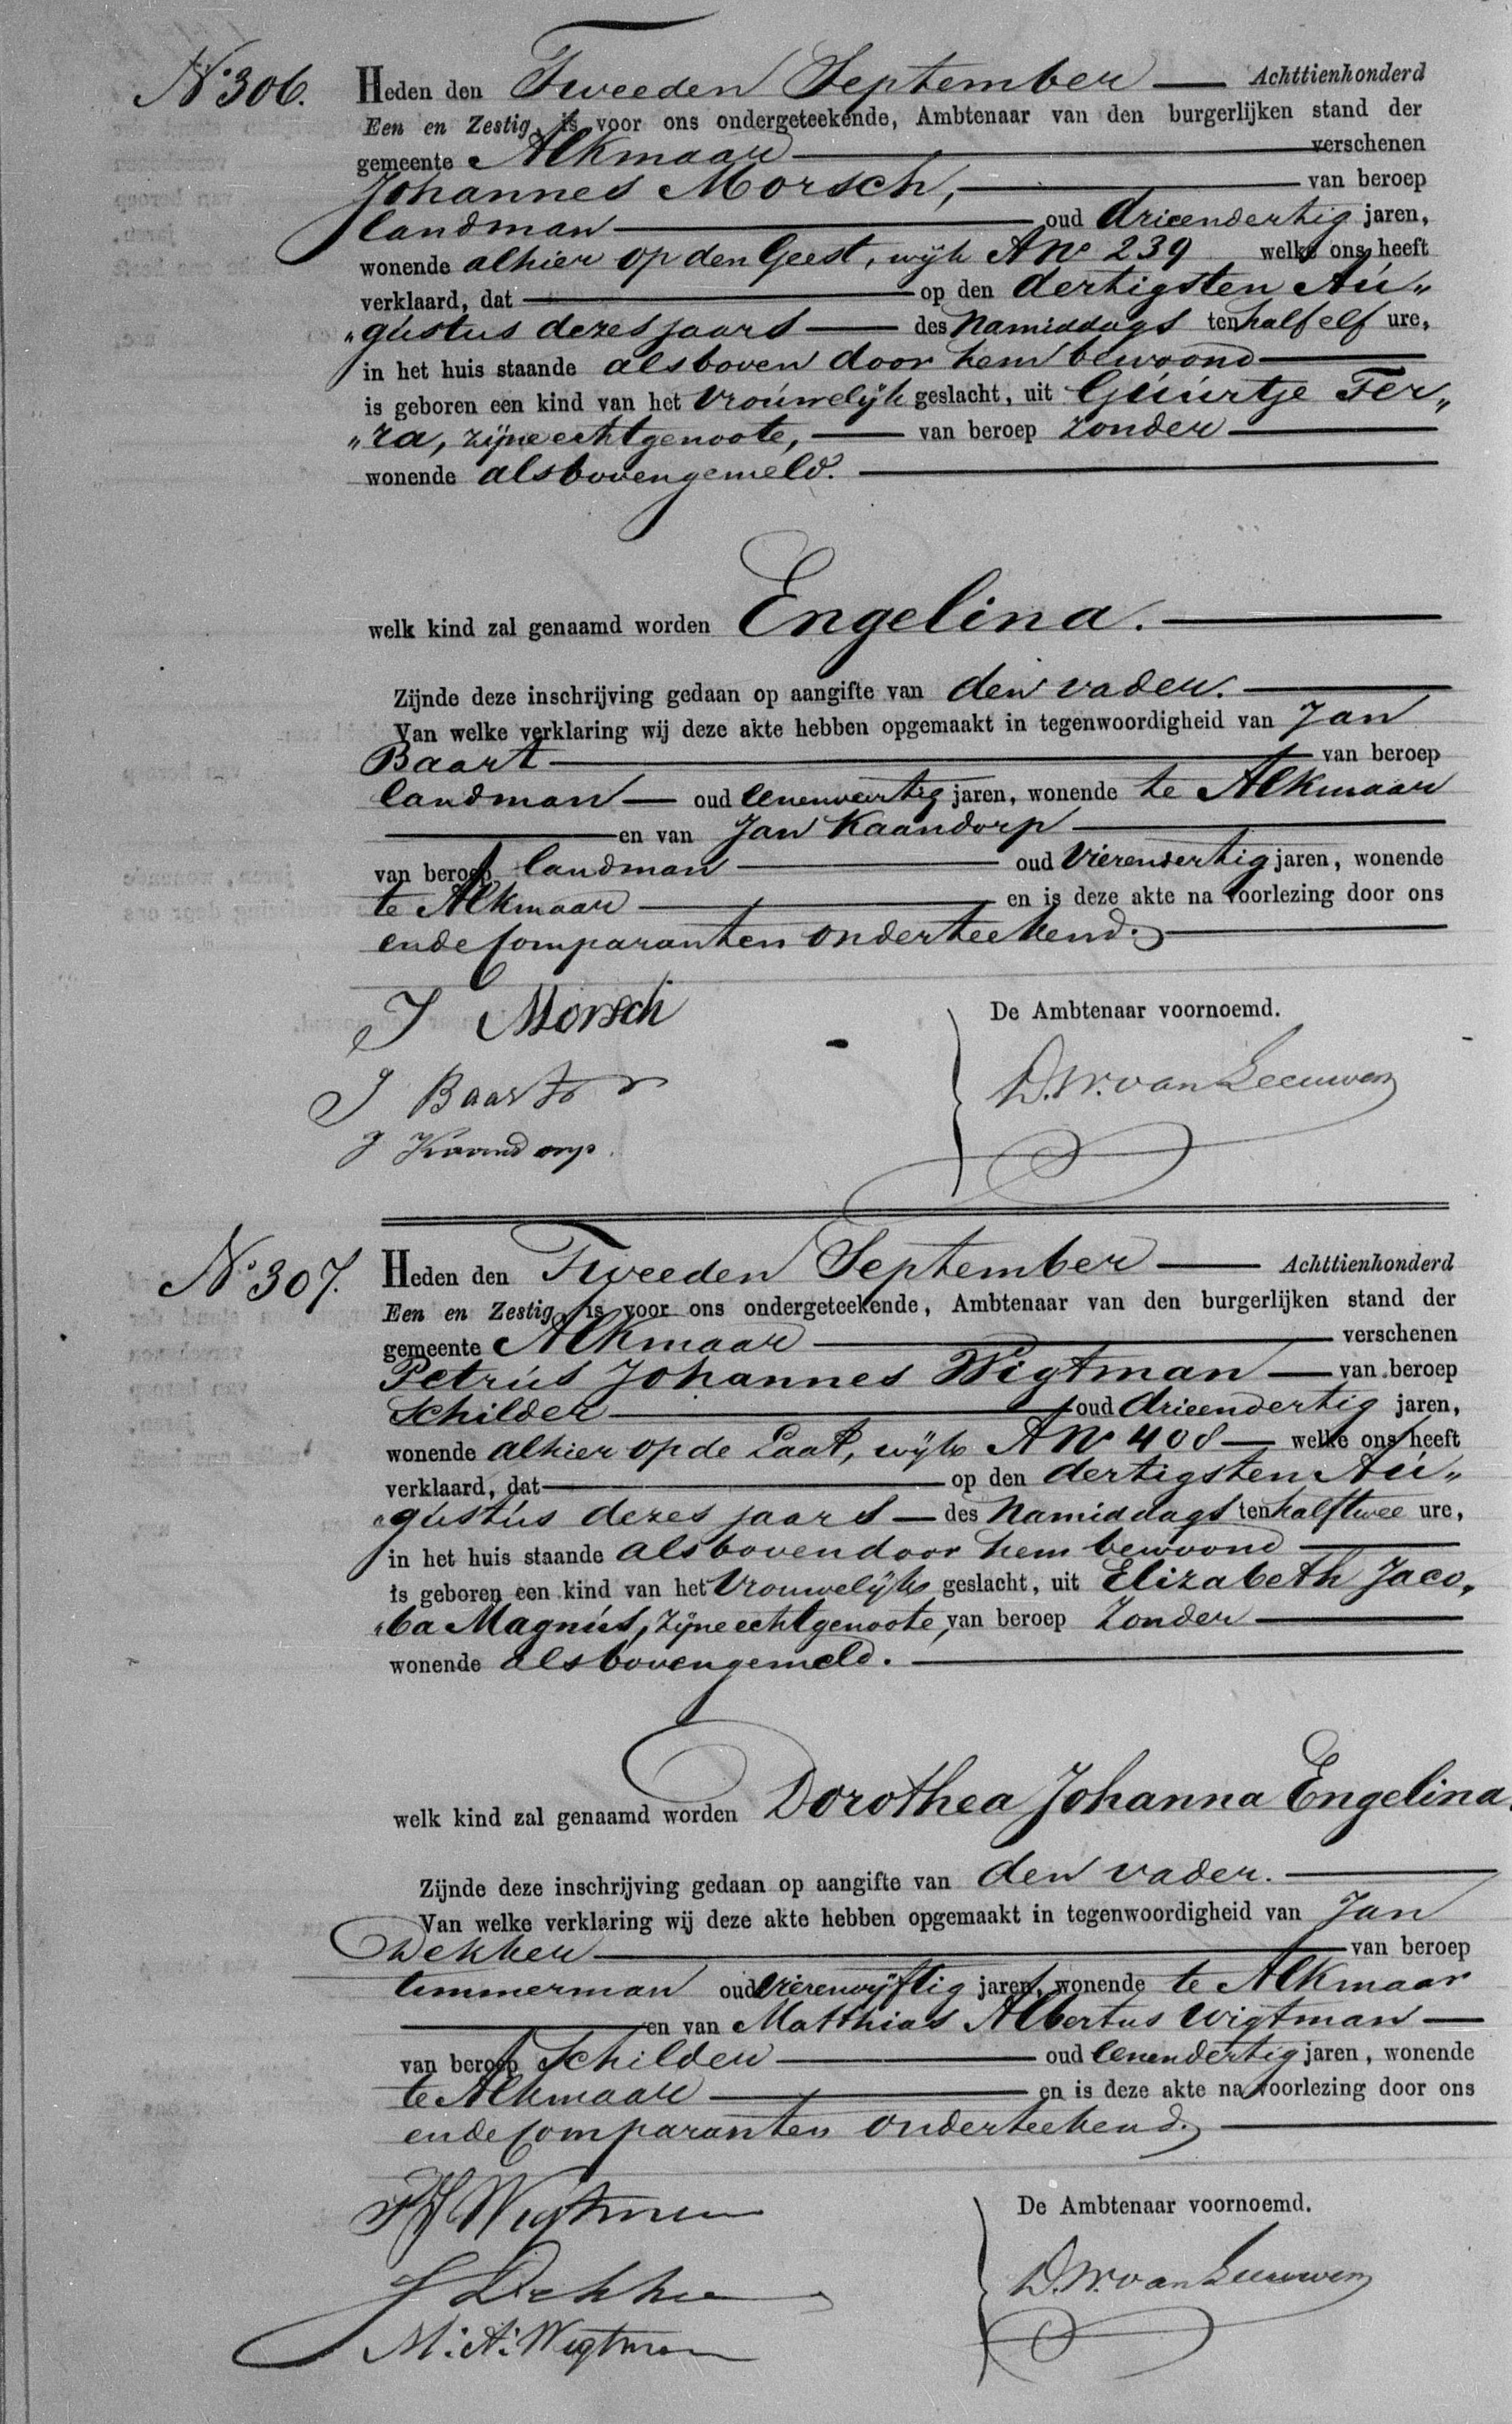 N° 306. Heden den Tweeden September Achttienhonderd
Een en Zestig, is voor ons ondergeteekende, Ambtenaar van den burgerlijken stand der
gemeente Alkmaar verschenen
Johannes Morsch, van beroep
landman oud drieendertig jaren,
wonende alhier op den Geest, wijk A No 239 welke ons heeft
verklaard, dat op den dertigsten Au„
„gustus dezes jaars des Namiddags ten half elf ure,
in het huis staande als boven door hem bewoond
is geboren een kind van het Vrouwelijk geslacht, uit Guurtje Ter„
„ra, zijne echtgenoote, van beroep zonder
wonende als bovengemeld.
welk kind zal genaamd worden Engelina.
Zijnde deze inschrijving gedaan op aangifte van den vader.
Van welke verklaring wij deze akte hebben opgemaakt in tegenwoordigheid van Jan
Baart van beroep
landman oud eenenveertig jaren, wonende te Alkmaar
en van Jan Kaandorp
van beroep landman oud vierendertig jaren, wonende
te Alkmaar en is deze akte na voorlezing door ons
en de Comparanten onderteekend.
J Morsch De Ambtenaar voornoemd.
J Baart D.W. van Leeuwen
J Kaandorp.
N° 307. Heden den Tweeden September Achttienhonderd
Een en Zestig, is voor ons ondergeteekende, Ambtenaar van den burgerlijken stand der
gemeente Alkmaar verschenen
Petrus Johannes Wigtman van beroep
Schilder oud drieendertig jaren,
wonende alhier op de Laat, wijk A No 408 welke ons heeft
verklaard, dat op den dertigsten Au„
„gustus dezes jaars des Namiddags ten half twee ure,
in het huis staande als boven door hem bewoond
is geboren een kind van het Vrouwelijk geslacht, uit Elizabeth Jaco„
„ba Magnus, zijne echtgenoote, van beroep zonder
wonende als bovengemeld.
welk kind zal genaamd worden Dorothea Johanna Engelina.
Zijnde deze inschrijving gedaan op aangifte van den vader.
Van welke verklaring wij deze akte hebben opgemaakt in tegenwoordigheid van Jan
Dekker van beroep
timmerman oud vierenvijftig jaren, wonende te Alkmaar
en van Matthias Albertus Wigtman
van beroep Schilder oud eenendertig jaren, wonende
te Alkmaar en is deze akte na voorlezing door ons
en de Comparanten onderteekend.
PJ Wigtman De Ambtenaar voornoemd.
J Dekker D.W. van Leeuwen
M: A: Wigtman